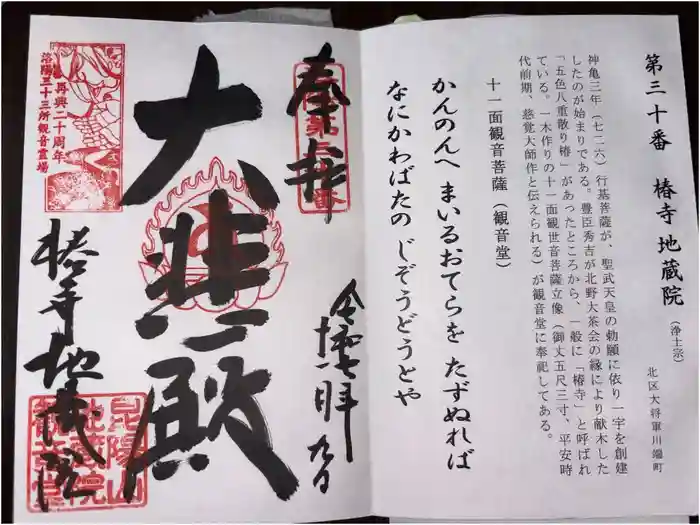 第三十番 椿寺 地蔵院 (浄土宗)
北区大将軍川端町
神亀三年(七二六)行基菩薩が、聖武天皇の勅願に依り一宇を創建
したのが始まりである。豊臣秀吉が北野大茶会の縁により献木した
「五色八重散り椿」があったところから、一般に「椿寺」と呼ばれ
ている。一木作りの十一面観世音菩薩立像(御丈五尺三寸、平安時
代前期、慈覚大師作と伝えられる)が観音堂に奉祀してある。
十一面観音菩薩(観音堂)
かんのんへ まいるおてらを たずぬれば
なにかわばたの じぞうどうとや
奉拝
大悲殿
椿寺地蔵院
再興二十周年
洛陽三十三所観音霊場
昆陽山
地蔵院